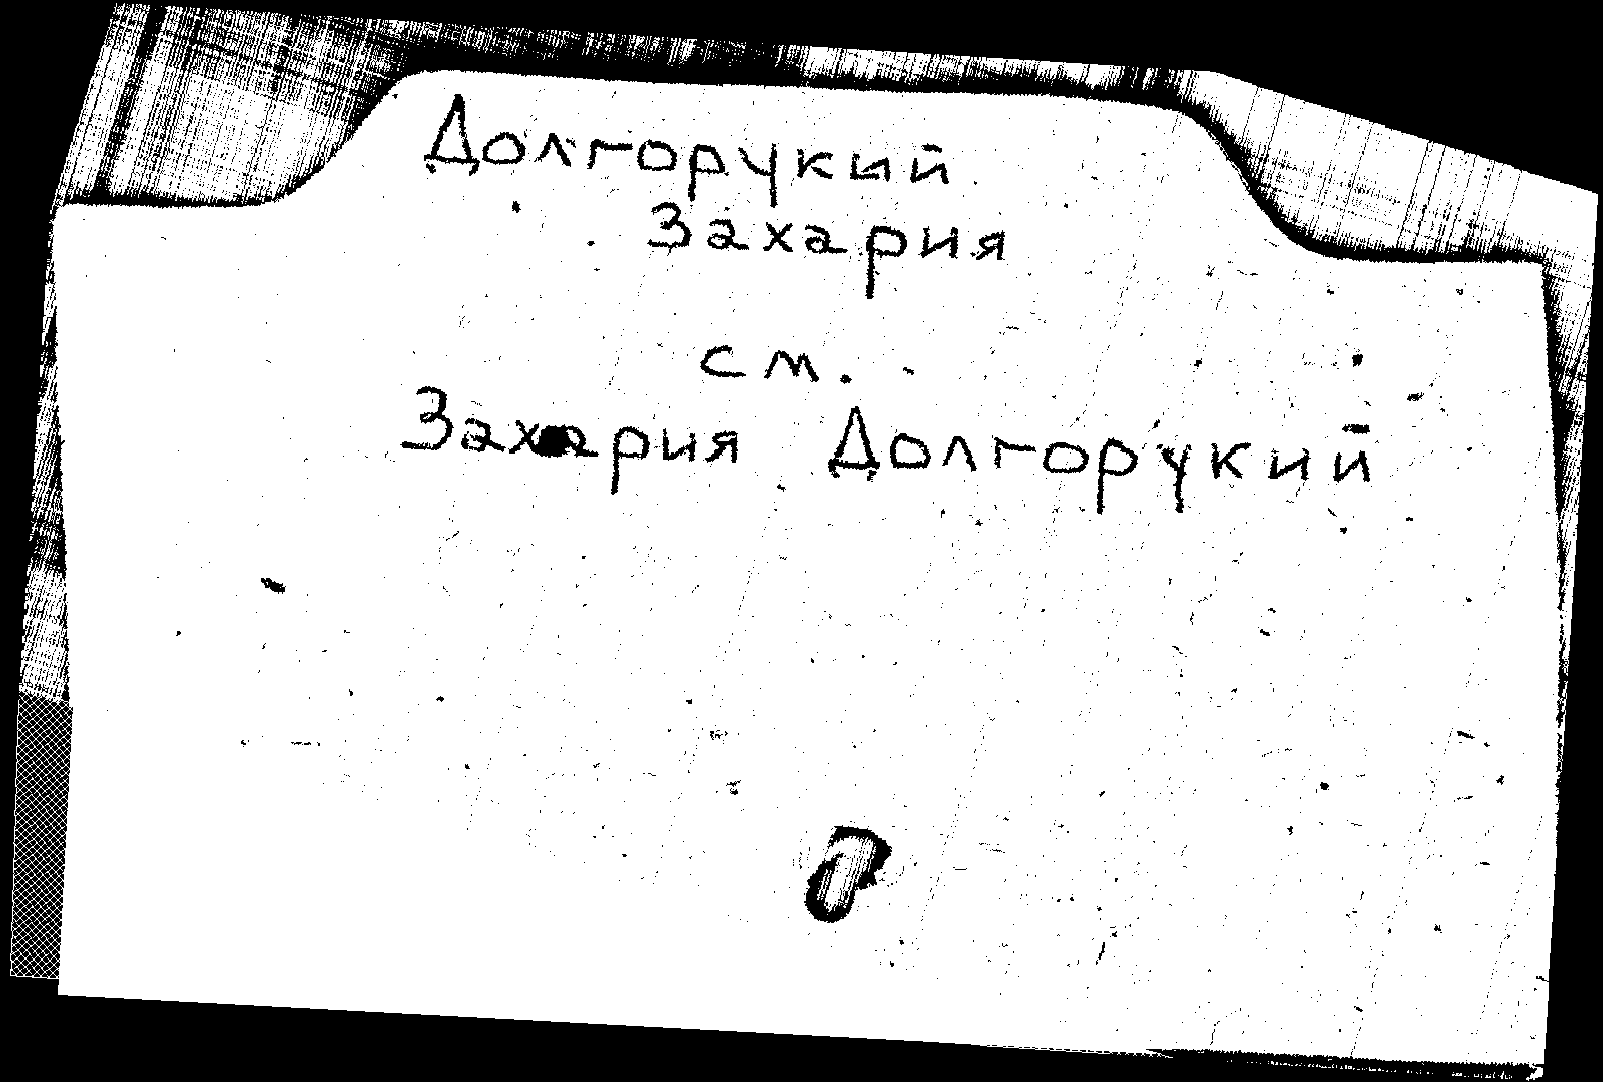 Долгорукий
Захария
см.
Захария Долгорукий